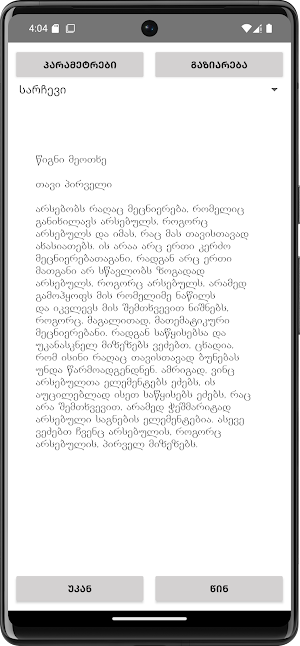 4:04
პარამეტრები
გაზიარება
სარჩევი
წიგნი მეოთხე
თავი პირველი
არსებობს რაღაც მეცნიერება, რომელიც
განიხილავს არსებულს, როგორც
არსებულს და იმას, რაც მას თავისთავად
ახასიათებს. ის არაა არც ერთი კერძო
მეცნიერებათაგანი, რადგან არც ერთი
მათგანი არ სწავლობს ზოგადად
არსებულს, როგორც არსებულს, არამედ
გამოჰყოფს მის რომელიმე ნაწილს
და იკვლევს მის შემთხვევით ნიშნებს,
როგორც, მაგალითად, მათემატიკური
მეცნიერებანი. რადგან საწყისებსა და
უკანასკნელ მიზეზებს ვეძებთ, ცხადია,
რომ ისინი რაღაც თავისთავად ბუნებას
უნდა წარმოადგენდნენ. ამრიგად, ვინც
არსებულთა ელემენტებს ეძებს, ის
აუცილებლად ისეთ საწყისებს ეძებს, რაც
არა შემთხვევით, არამედ ჭეშმარიტად
არსებული საგნების ელემენტებია. ასევე
ვეძებთ ჩვენც არსებულის, როგორც
არსებულის, პირველ მიზეზებს.
უკან
წინ